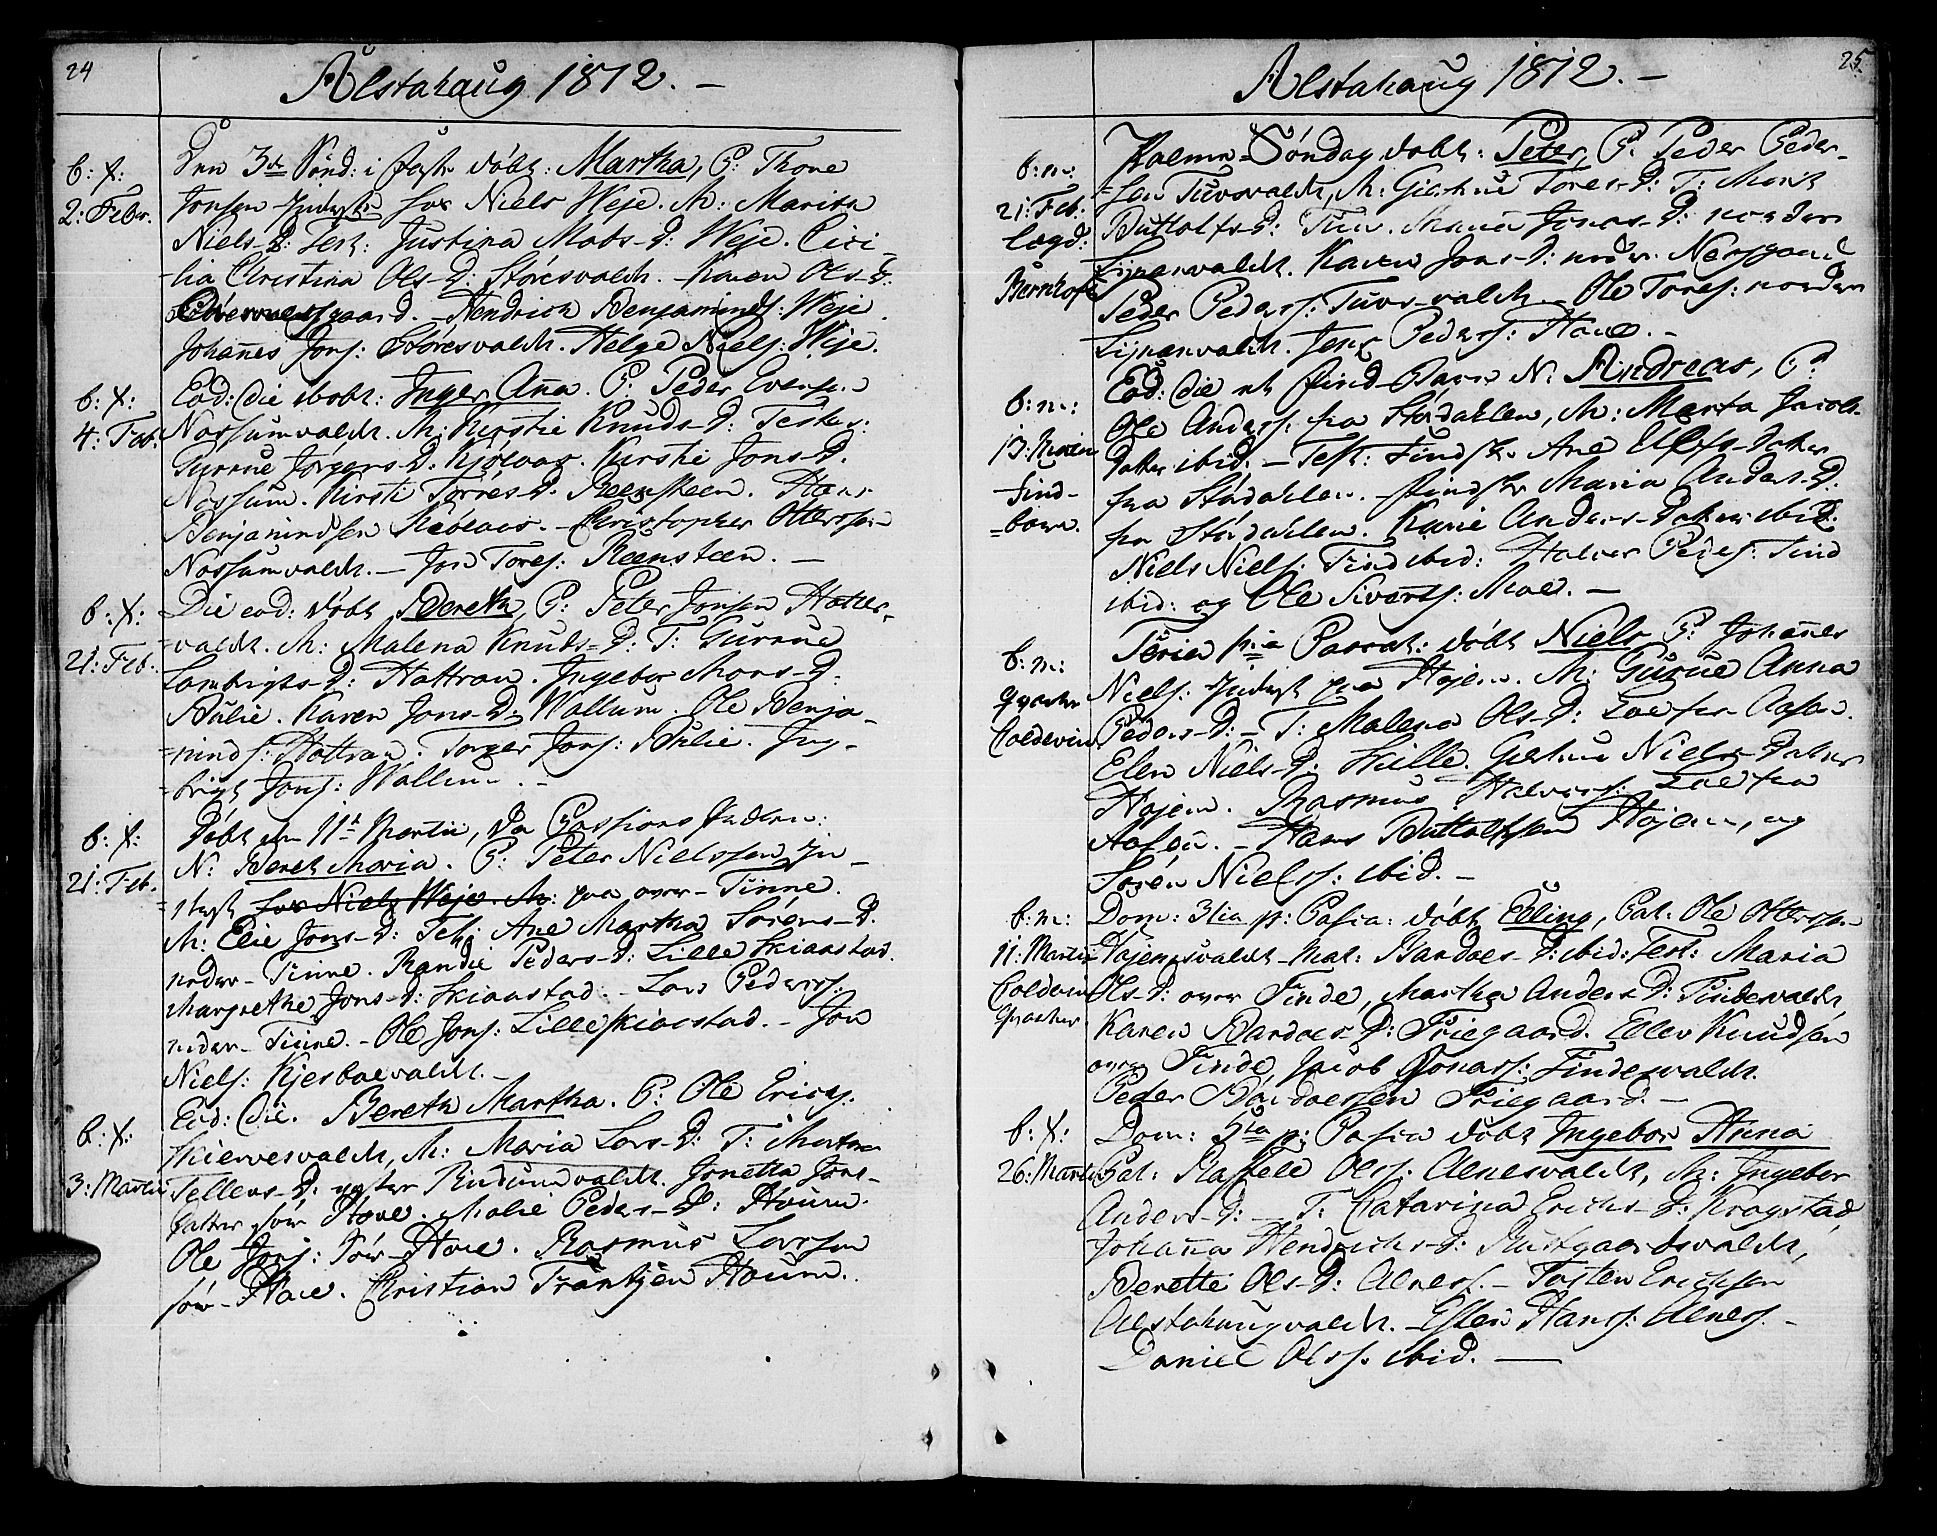 24
Alstahaug 1812. –
b: f:
2: Febr.
Den 3de Sönd: i fast döbt: Martha, P: Thore
Jonsen Inderst hos Niels Weje. M: Marita
Niels-D: Test: Justina Mads-D: Weje. Cici-
lia Christina Ols-D: Störesvaldt. – Karen Ols-D:
gaard. – Hendrich Benjaminds: Weje.
Johañes Jons: Störesvaldt. Helge Niels: Weje.
b: f:
4: Feb.
Eod: die döbt: Inger Aña. P: Peder Evensen
Nossumvaldt. M: Kirstie Knuds-D: Testes:
Gurrue Jörgens-D. Kirstie Jons-D.
Nossum. Kirsti Torres-D. Reensteen. Hans
Benjamindsen – Christopher Ottersen
Nossumvaldt. – Jon Tores: Reensteen. –
b: f:
21: Feb.
Die eod: döbt Bereth, P: Peter Jonsen Hatter-
valdt. M: Malena Knuds-D: T: Gurrue
Lambrigts-D: Hattran. Ingebor Mons-D:
Bulie. Karen Jons-D: Wallum. Ole Benja-
minds: Hattran. Torger Jons: Bulie. Ing-
brigt Jons: Wallum. –
b: f:
21: Feb.
Döbt den 11t Martii, da Passions
N: Beret Maria. P: Peter Nielssen In-
derst hos Niels Weje. M: paa over-Tinne.
M: Elie Jons-D: Test: Ane Martha Sörens-D.
neder-Tinne. Randie Peders-D: Lille Skiaastad.
Margrethe Jons-D: Skiaastad. – Lars Peders:
neder-Tinne. – Ole Jons: Lille skiaastad. – Jon
Niels: Kjesboevaldt. –
b: f:
3: Martii
Eod: Die. Bereth Martha. P: Ole Erichs:
Skiervesvaldt, M: Maria Lars-D: T: Martha
Tellevs-D: Rindumvaldt. Jonetta Jons-
datter sör Howe. Malie Peders-D: Houm.
Ole Jons: sör-Howe. Rasmus Larssen
sör-Howe. Christian Trantjen Houm.
25.
Alstahaug 1812. –
b: m:
21: Feb:
Palme-Söndag döbt: Peter, P. Peder Peder-
sen Tuvsvaldt, M: Gjertrue Tores-D: T: Marit
Buttolfs-D: Tuv. Maria Jonas-D: norden
Karen Jons-D: neder. Nessgaard
Peder Peders: Tuvs-valdt. Ole Tores: norden
Jens Peders: Howe. –
b: m:
13: Martii
find-
=barn.
Eod: Die et find-Barn N: Andreas, P:
Ole Anders: fra Stördahlen, M: Marta Jacobs-
datter ibid. – Test: Findsk. Ane Ellefs-Datter
fra Stördahlen. – findsk Maria Anders-D.
fra Stördahlen. Karie Anders-Datter ibid:
Niels Niels: Find ibid: Halver Peders: Find
ibid: og Ole Sivarts: Moe. –
b: m:
Coldevin
Feria 1ma Pascat: döbt Niels P: Johañes
Niels: Inderst paa Höjem. M: Gurue Anna
Peders-D: – T: Malena Ols-D:
Elen Niels-D: Hille. Gjertrue Niels-Datter
Hojem. Rasmus Halvers:
Aasen. – Hans Buttolfssen Höjem, og
Sören Nielss: ibid. –
b: m:
11: Martii
Coldevin
Dom: 3tia p: Pasca: döbt Elling, Pat: Ole Otterssen
Höjemsvaldt – Mat: Bardoes-D: ibid: Test: Maria
Ols-D: over Finde, Martha Anders-D: Findesvaldt,
Karen Bardoes-D: Friegaard. Ellev Knudsen
over Finde, Jacob Jonass: Findesvaldt.
Peder Bardoessen Friegaard. –
b: f:
26: Martii
Dom: 5ta p: Pasca döbt Ingebor Anna
Pat: Olss: Alnesvaldt, M: Ingebor
Anders-D: – T: Catarina Erichs-D: Kragstad
Johaña Hendrichs-D: Rustgaardsvaldt,
Berette Ols-D: Alness. – Tosten Erichsen
Alstahaugvaldt. – Esten Hanss: Alness. –
Daniel Olss. ibid. –